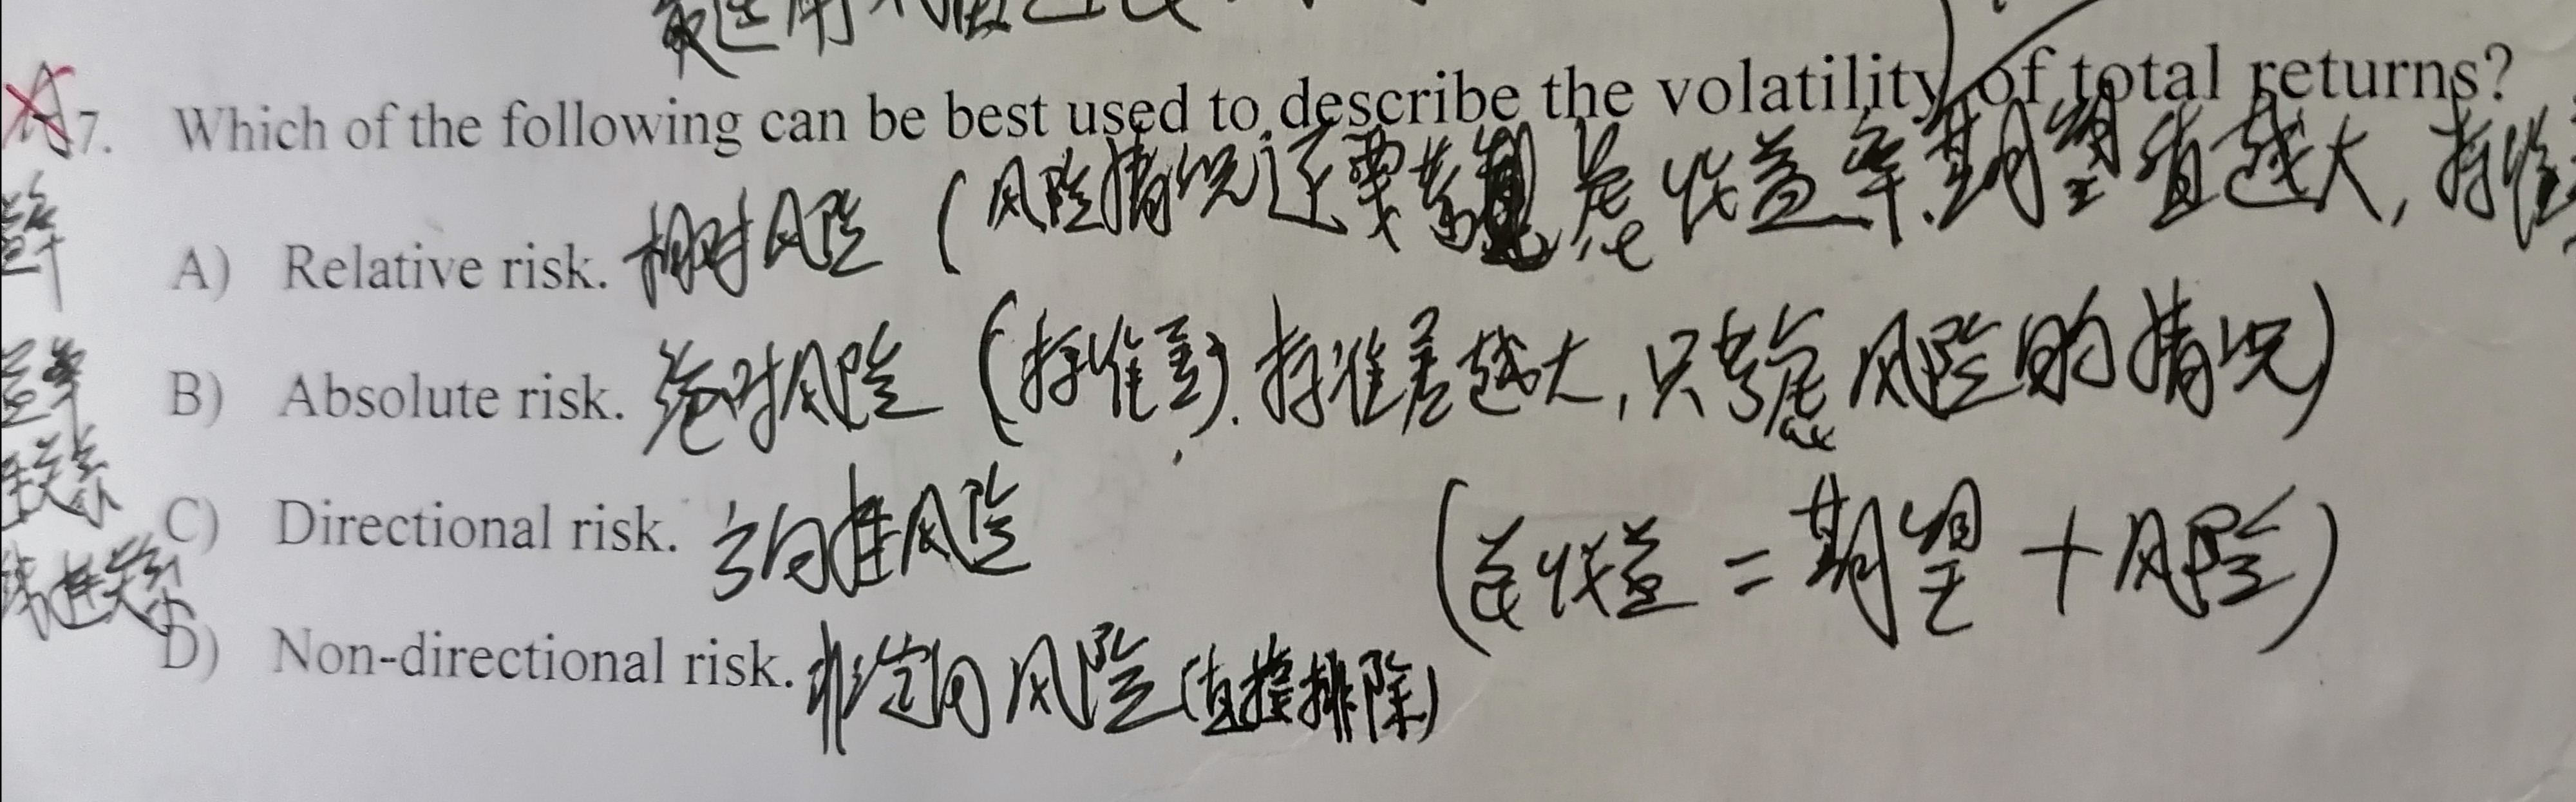 7. Which of the following can be best used to describe the volatility of total returns?
A) Relative risk. 相对风险 (风险情况还要考虑 收益率.期望值越大, 标准
B) Absolute risk. 绝对风险 (标准差). 标准差越大, 只考虑风险的情况)
C) Directional risk. 方向性风险 (总收益 = 期望 + 风险)
D) Non-directional risk. 非定向风险 (直接排除)